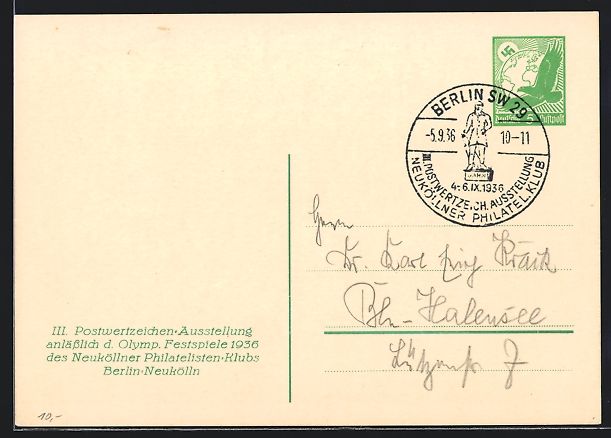 Deutsche Luftpost
5
BERLIN SW 29
-5.9.36 10-11
4.-6.IX.1936
III. POSTWERTZEICH. AUSSTELLUNG
NEUKÖLLNER PHILATEL. KLUB
Herrn
Dr. Karl
Bln-Halensee
7
III. Postwertzeichen-Ausstellung
anläßlich d. Olymp. Festspiele 1936
des Neuköllner Philatelisten-Klubs
Berlin-Neukölln
10,-